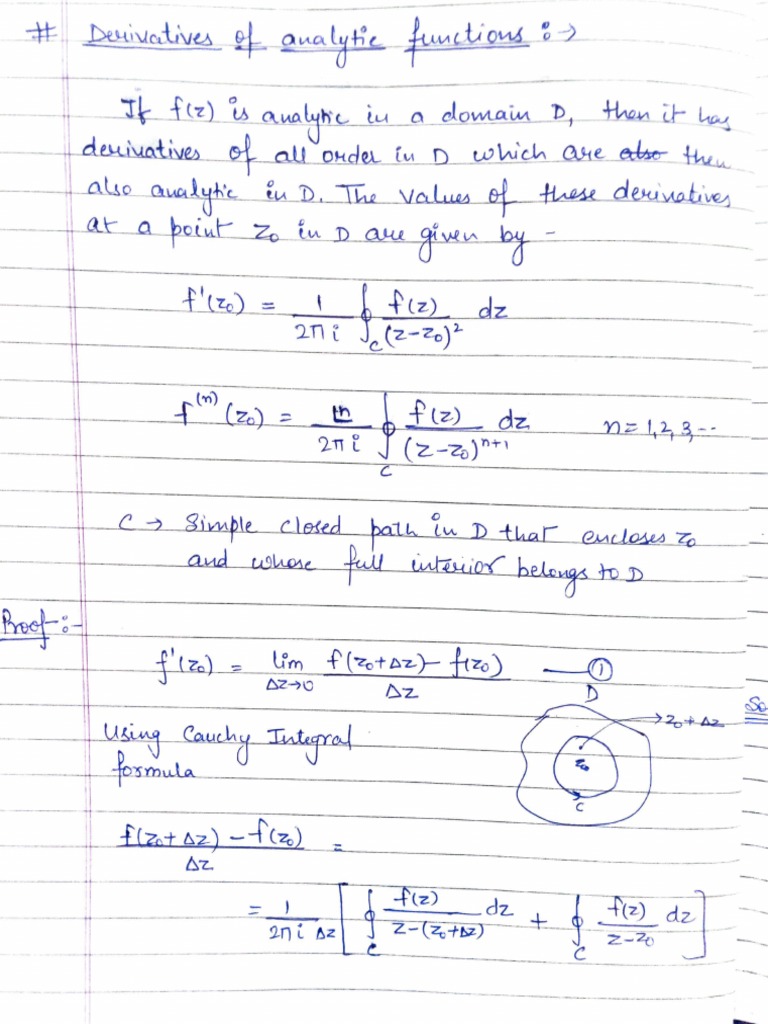 # Derivatives of analytic functions :->
If f(z) is analytic in a domain D, then it has
derivatives of all order in D which are also then
also analytic in D. The values of these derivatives
at a point z₀ in D are given by -
f'(z₀) = 1/2πi ∮_C f(z)/(z-z₀)² dz
f⁽ⁿ⁾(z₀) = n!/2πi ∮_C f(z)/(z-z₀)ⁿ⁺¹ dz n=1,2,3,--
C → Simple closed path in D that encloses z₀
and whose full interior belongs to D
Proof :-
f'(z₀) = lim Δz→0 f(z₀+Δz)-f(z₀)/Δz —①
D
So
z₀+Δz
Using Cauchy Integral
z₀
formula
C
f(z₀+Δz)-f(z₀)/Δz =
= 1/2πi Δz [∮_C f(z)/z-(z₀+Δz) dz + ∮_C f(z)/z-z₀ dz]